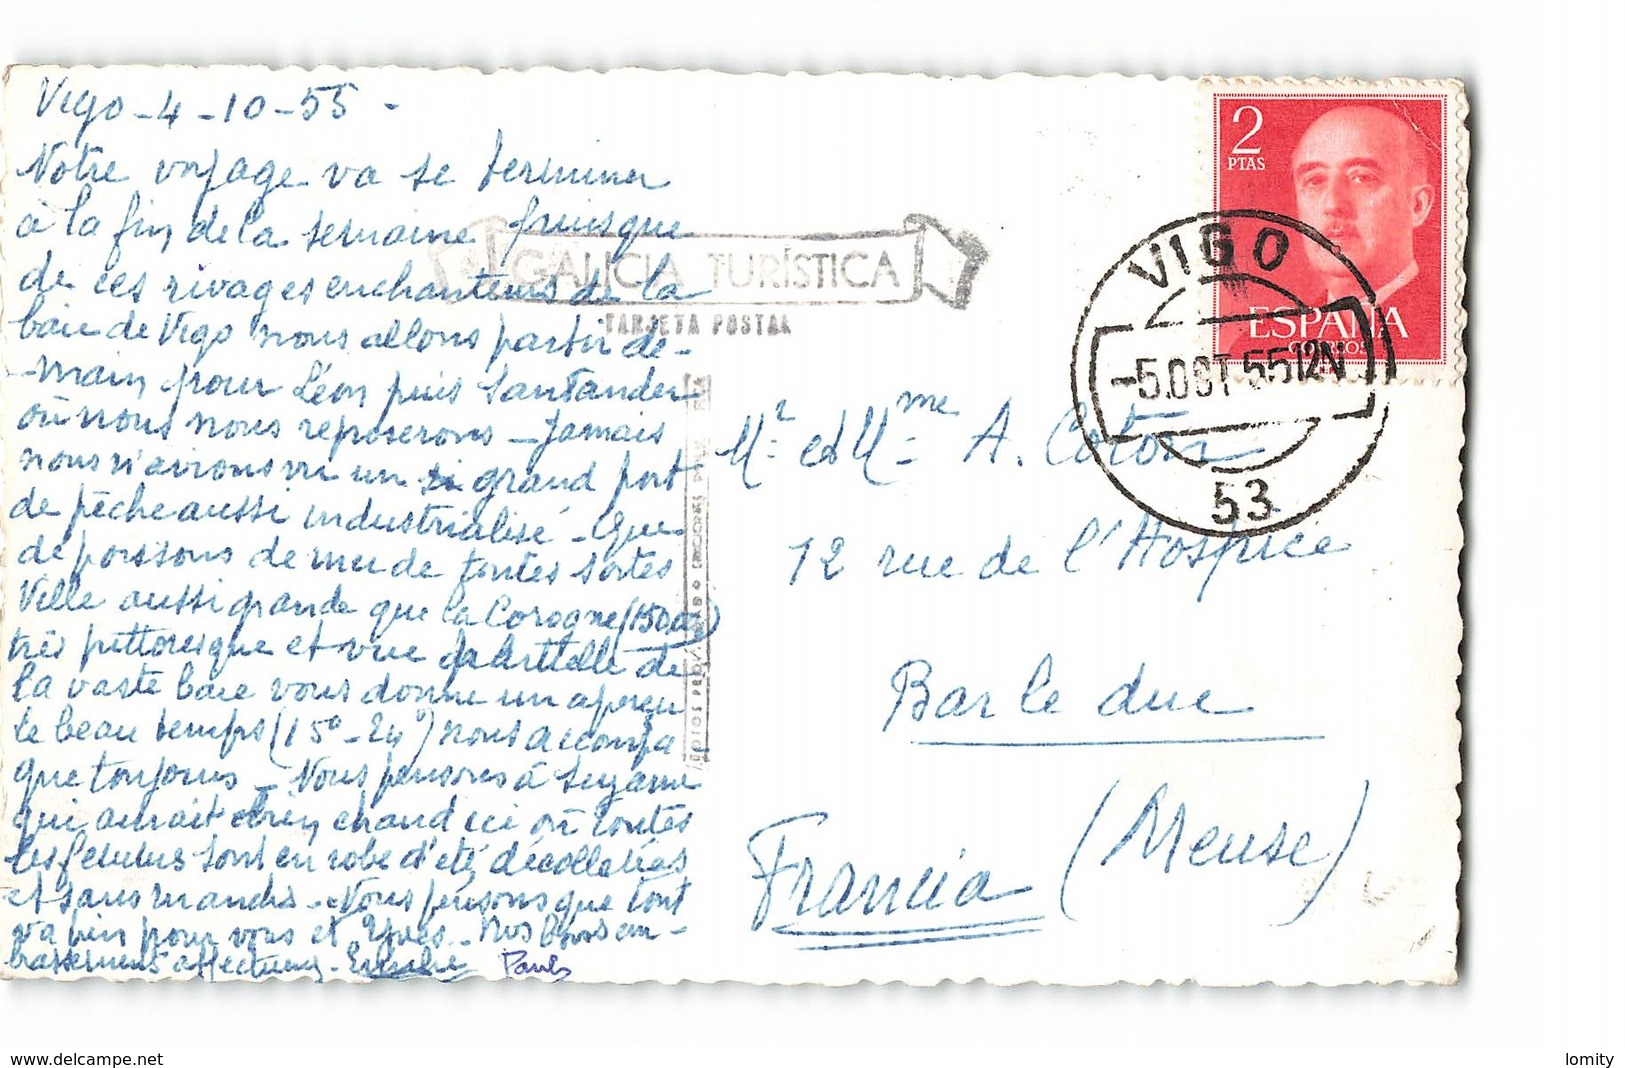 Vigo - 4 - 10 - 55 -
Notre voyage va se terminer
à la fin de la semaine puisque
de ces rivages enchanteurs de la
baie de Vigo nous allons partir de-
-main pour Léon puis Santander
où nous nous reposerons - Jamais
nous n'avions vu un si grand port
de pêche aussi industrialisé - Que
de poissons de mer de toutes sortes
Ville aussi grande que la Corogne (150,000)
très pittoresque et vue de
la vaste baie vous donne un aperçu
le beau temps (15° - 24°) nous accompa
que toujours - Nous pensons à Suzanne
qui aurait bien chaud ici où toutes
les femmes sont en robe d'été décolletées
et sans manches - Nous pensons que tout
va bien pour vous et Yves - Nos bons em-
brassements affectueux - Paule
GALICIA TURÍSTICA
TARJETA POSTAL
2
PTAS
ESPAÑA
CORREOS
VIGO
-5.OCT.55 12N
53
Mr et Mme A. Colon
12 rue de l'Hospice
Bar le duc
(Meuse)
Francia
www.delcampe.net
lomity